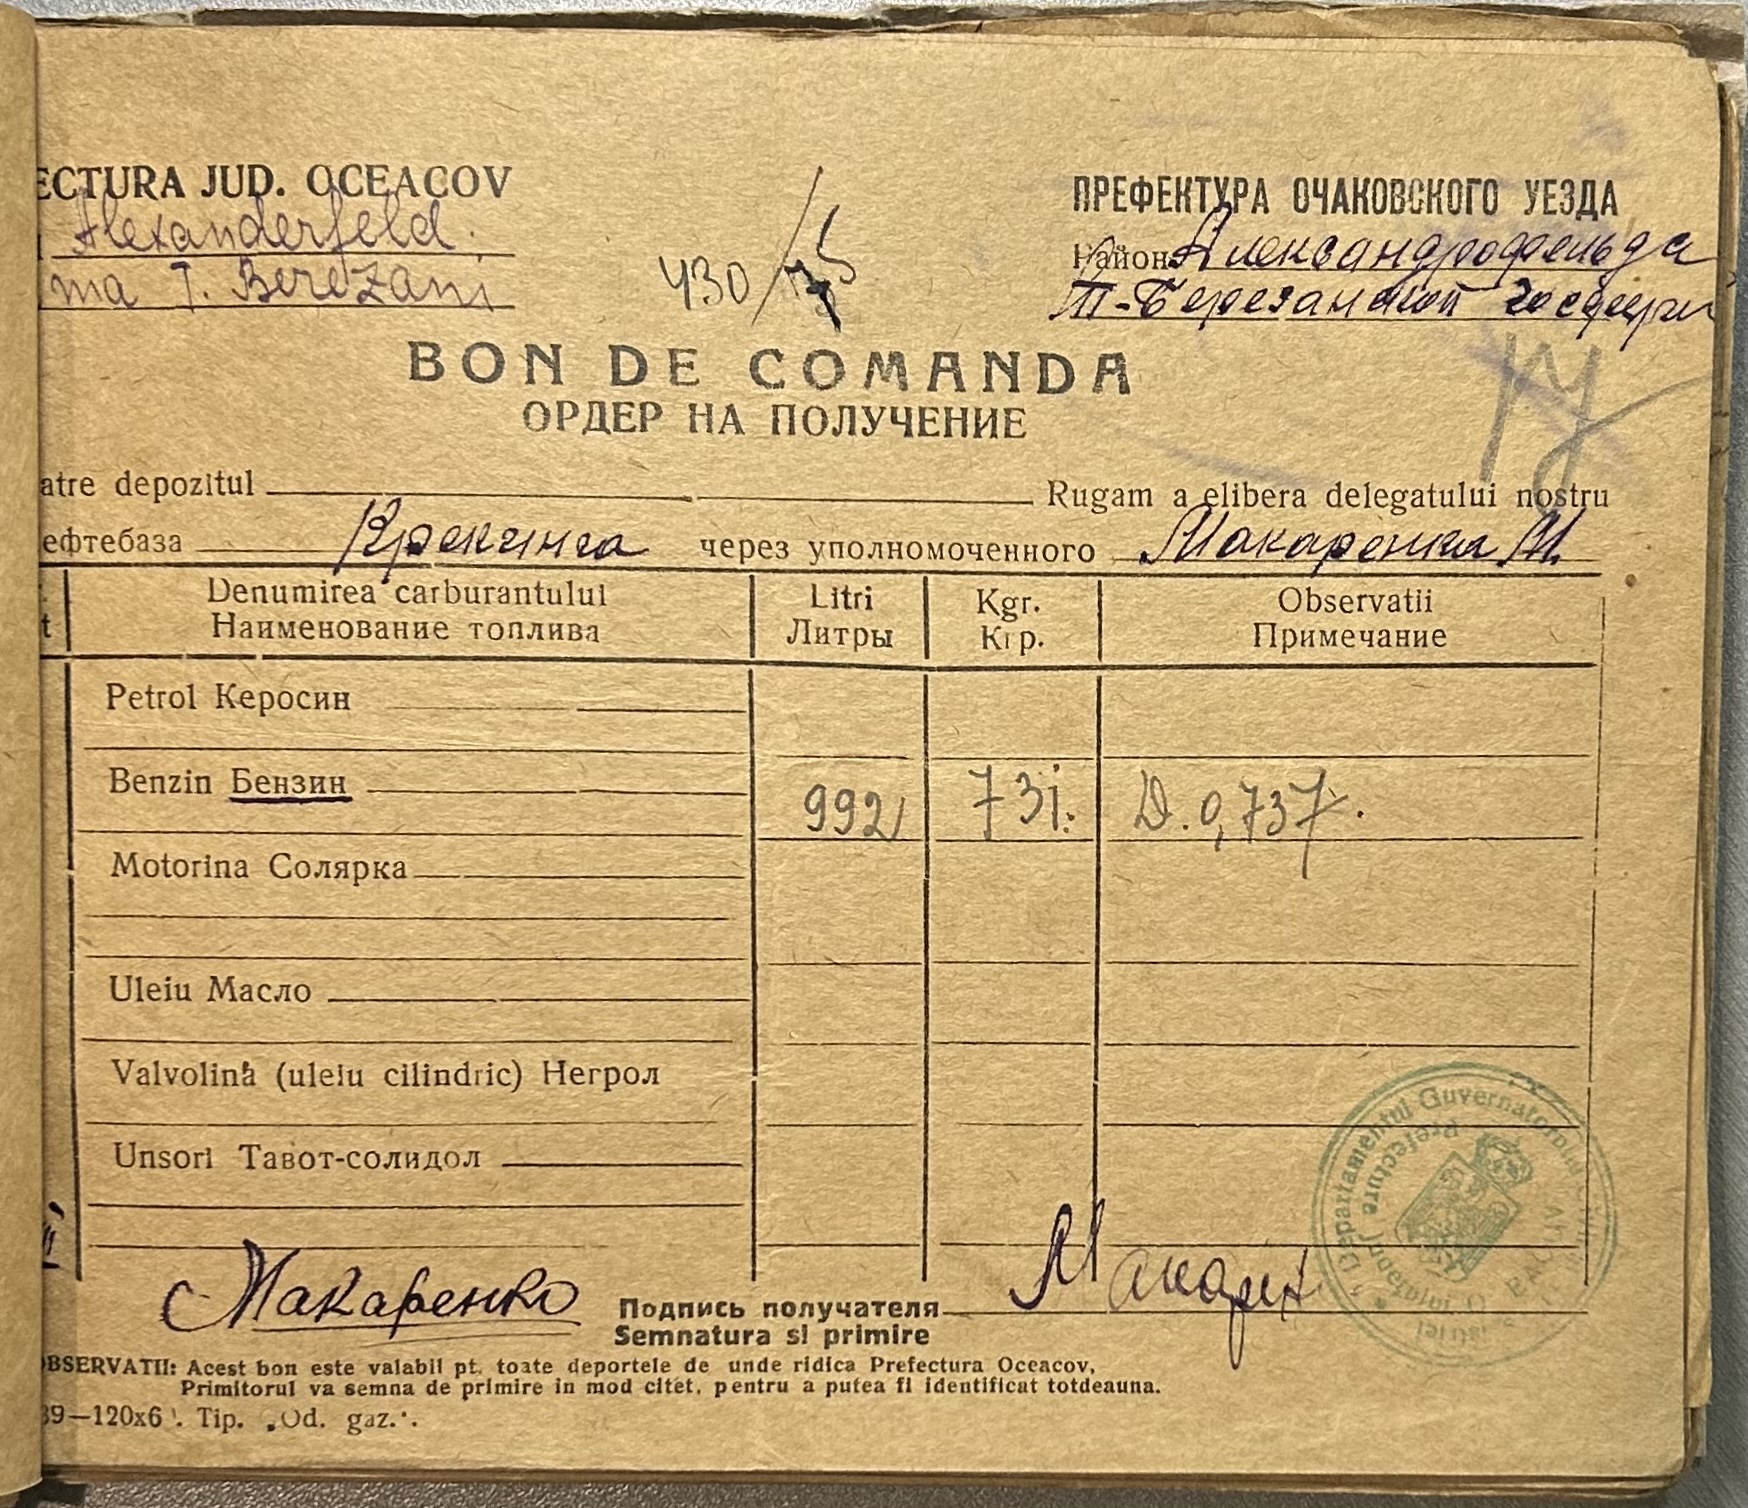 ECTURA JUD. OCEACOV
Alexanderfeld.
ma T. Berezani
430/
ПРЕФЕКТУРА ОЧАКОВСКОГО УЕЗДА
Район Александрофельда
Т-Березанской госферм
BON DE COMANDA
ОРДЕР НА ПОЛУЧЕНИЕ
atre depozitul Rugam a elibera delegatului nostru
ефтебаза Крекинга через уполномоченного Макаренка М.
Denumirea carburantului Litri Kgr. Observatii
t Наименование топлива Литры Кгр. Примечание
Petrol Керосин
Benzin Бензин 992 731. D. 0,737.
Motorina Солярка
Uleiu Масло
Valvolină (uleiu cilindric) Негрол
Unsori Тавот-солидол
Макаренко Подпись получателя
Semnatura si primire
OBSERVATII: Acest bon este valabil pt. toate deportele de unde ridica Prefectura Oceacov,
Primitorul va semna de primire in mod citet, pentru a putea fi identificat totdeauna.
39—120x6 . Tip. „Od. gaz.".
Departamentul Guvernatorului
Prefectura Județean O